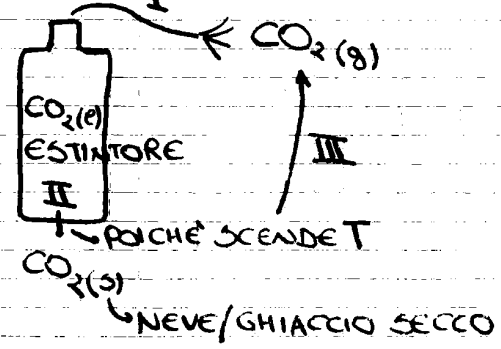 I
CO₂(g)
CO₂(l)
ESTINTORE
II
III
POICHÈ SCENDE T
CO₂(s)
NEVE/GHIACCIO SECCO